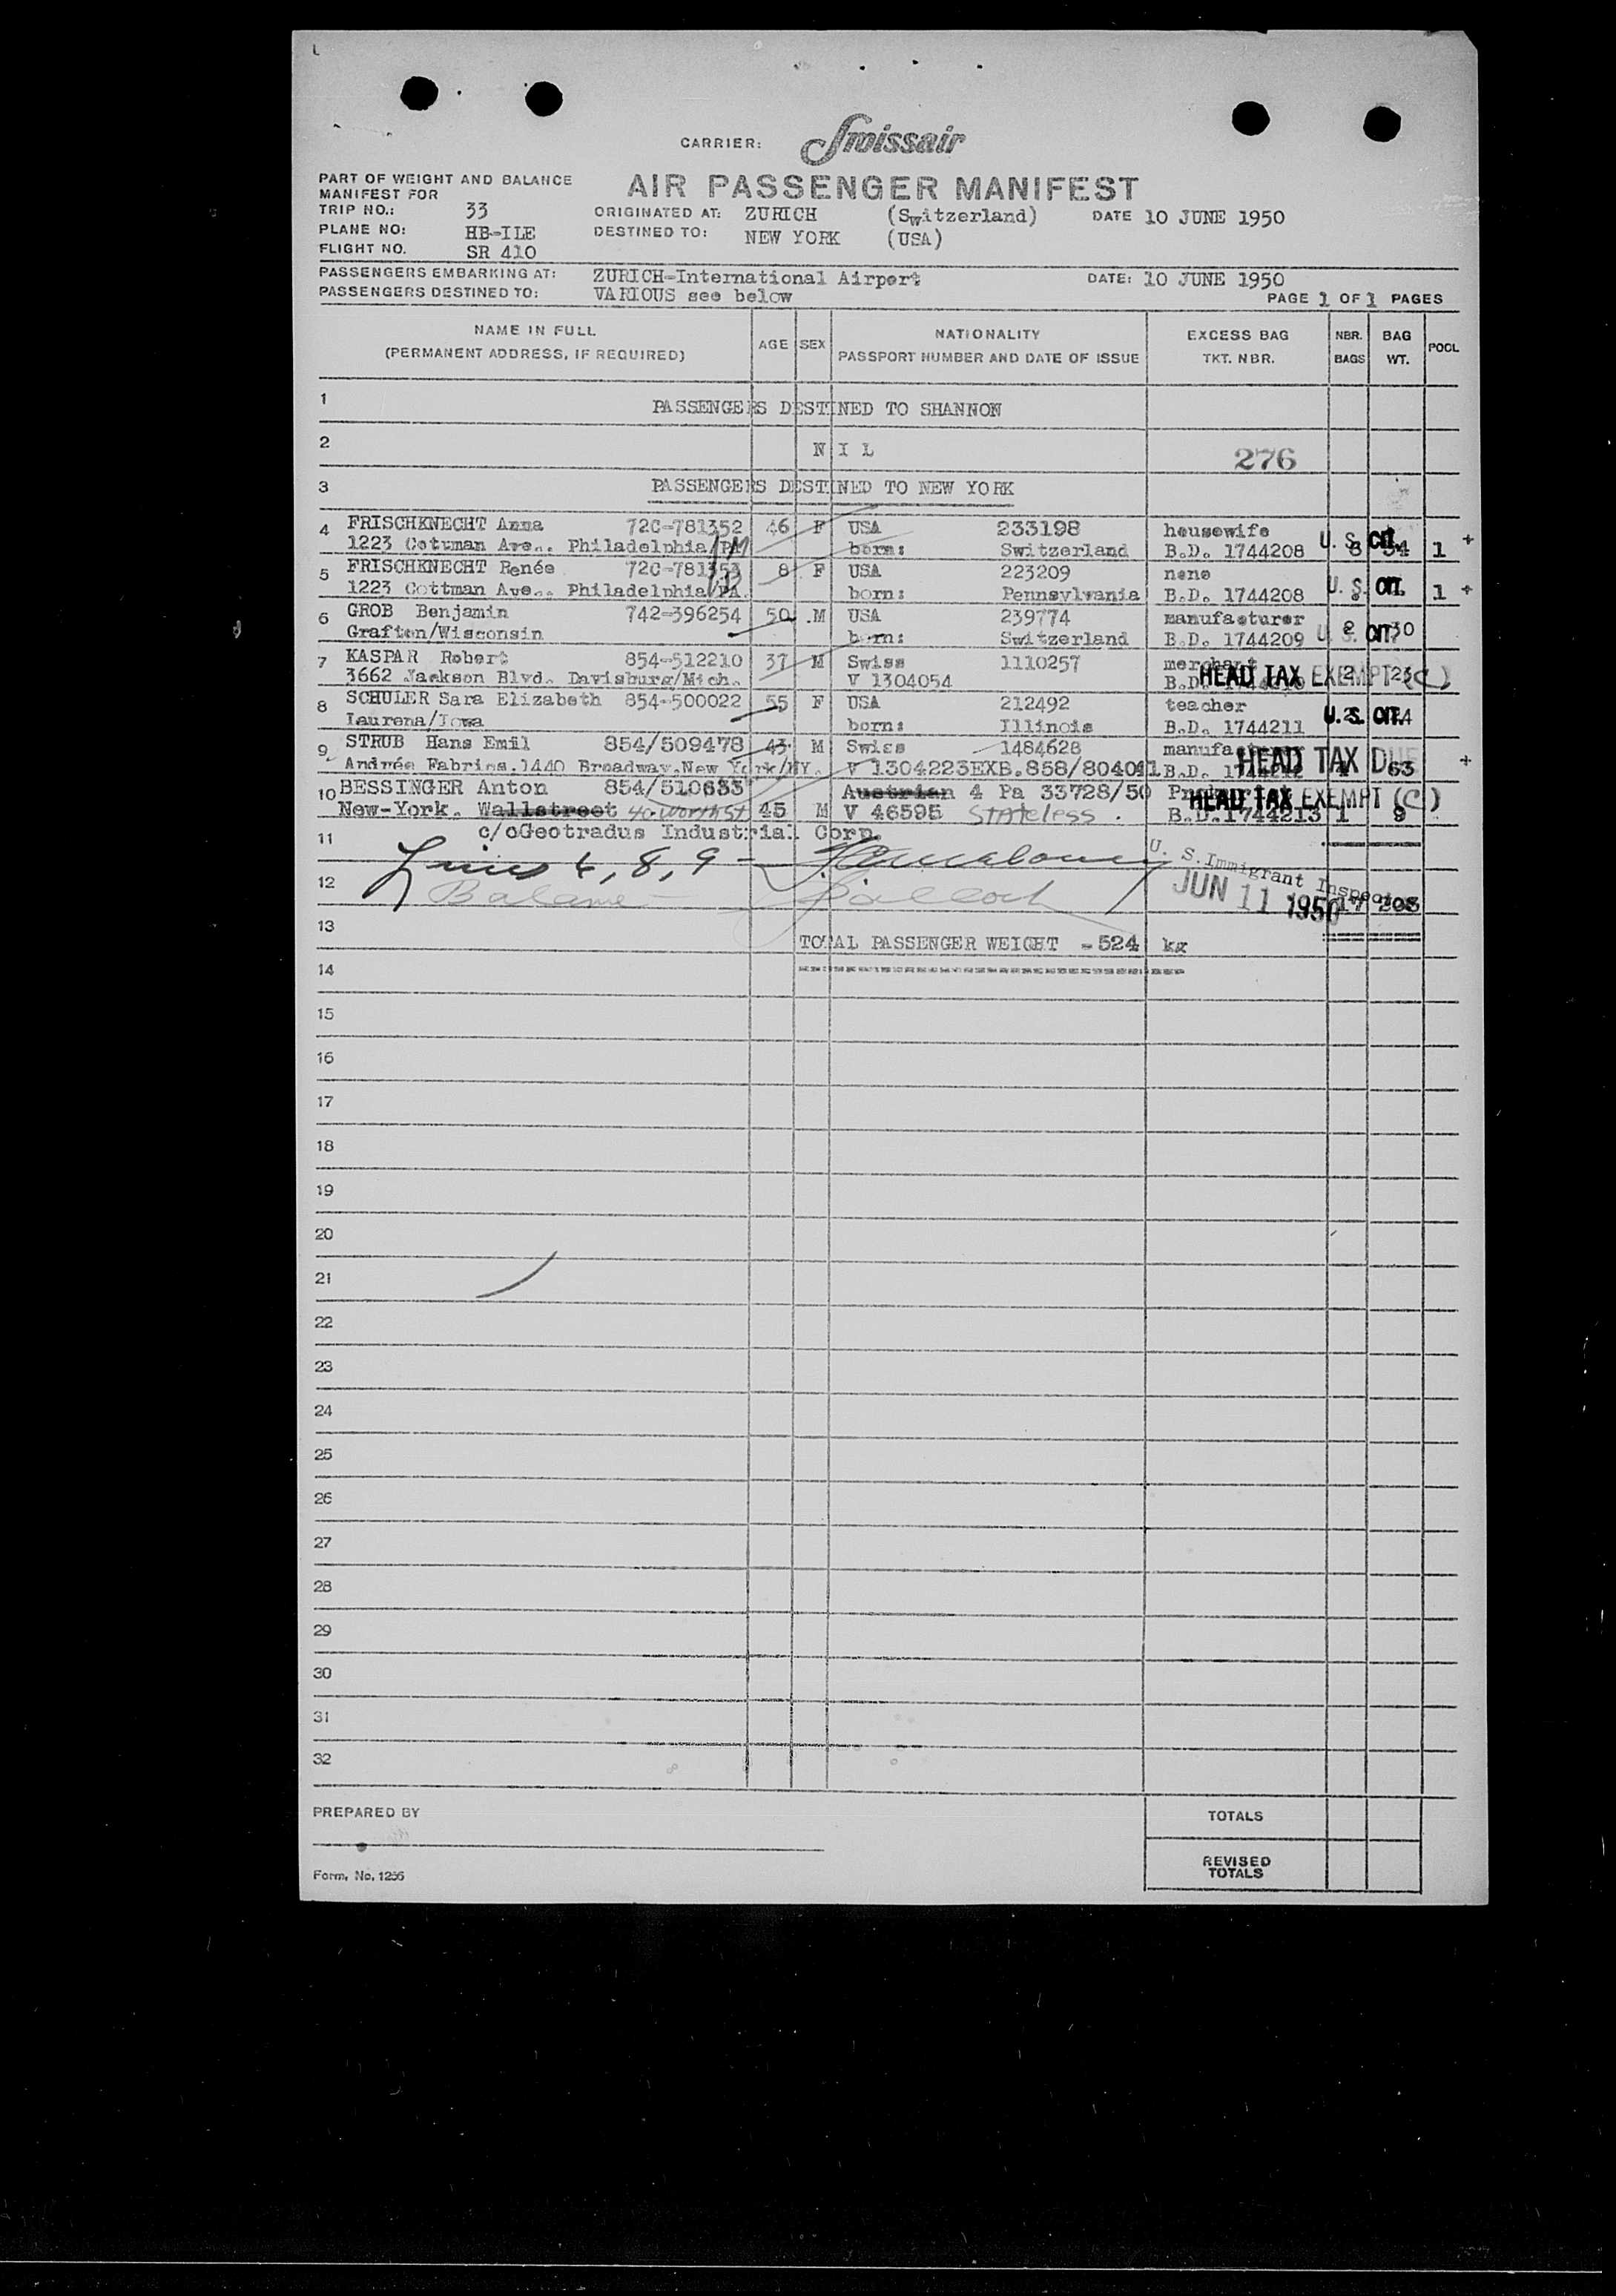 CARRIER: Swissair
PART OF WEIGHT AND BALANCE
MANIFEST FOR
AIR PASSENGER MANIFEST
TRIP NO.: 33 ORIGINATED AT: ZURICH (Switzerland) DATE 10 JUNE 1950
PLANE NO: HB-ILE DESTINED TO: NEW YORK (USA)
FLIGHT NO. SR 410
PASSENGERS EMBARKING AT: ZURICH-International Airport DATE: 10 JUNE 1950
PASSENGERS DESTINED TO: VARIOUS see below
PAGE 1 OF 1 PAGES
NAME IN FULL
(PERMANENT ADDRESS, IF REQUIRED)
AGE SEX
NATIONALITY
PASSPORT NUMBER AND DATE OF ISSUE
EXCESS BAG
TKT. NBR.
NBR.
BAGS
BAG
WT.
POOL
1 PASSENGERS DESTINED TO SHANNON
2 N I L 276
3 PASSENGERS DESTINED TO NEW YORK
4 FRISCHKNECHT Anna 72C-781352 46 F USA 233198 housewife U. S. CIT.
1223 Cottman Ave.. Philadelphia/PA born: Switzerland B.D. 1744208 1 +
5 FRISCHKNECHT Renée 72C-781353 8 F USA 223209 none U. S. CIT.
1223 Cottman Ave.. Philadelphia/PA. born: Pennsylvania B.D. 1744208 1 +
6 GROB Benjamin 742-396254 50 M USA 239774 manufacturer 30
Grafton/Wisconsin born: Switzerland B.D. 1744209 U. S. CIT.
7 KASPAR Robert 854-512210 37 M Swiss 1110257 merchant 2 23
3662 Jackson Blvd. Davisburg/Mich. V 1304054 B.D. HEAD TAX EXEMPT (C)
8 SCHULER Sara Elizabeth 854-500022 55 F USA 212492 teacher
Laurens/Iowa born: Illinois B.D. 1744211 U. S. CIT.
9 STRUB Hans Emil 854/509478 43 M Swiss 1484628 HEAD TAX DUE
Andrée Fabrics.1440 Broadway.New York/NY. V 1304223 EXB.858/804041 B.D. 63 +
10 BESSINGER Anton 854/510633 Austrian 4 Pa 33728/50 HEAD TAX EXEMPT (C)
New-York. Wallstreet 40 Worth St 45 M V 46595 Stateless. B.D.1744213 1 9
11 c/oGeotradus Industrial Corp.
Lines 6, 8, 9 -
U. S. Immigrant Inspector
12 Balance -
JUN 11 1950
13 TOTAL PASSENGER WEIGHT - 524 kg
14
15
16
17
18
19
20
21
22
23
24
25
26
27
28
29
30
31
32
PREPARED BY
TOTALS
REVISED
TOTALS
Form. No. 1256